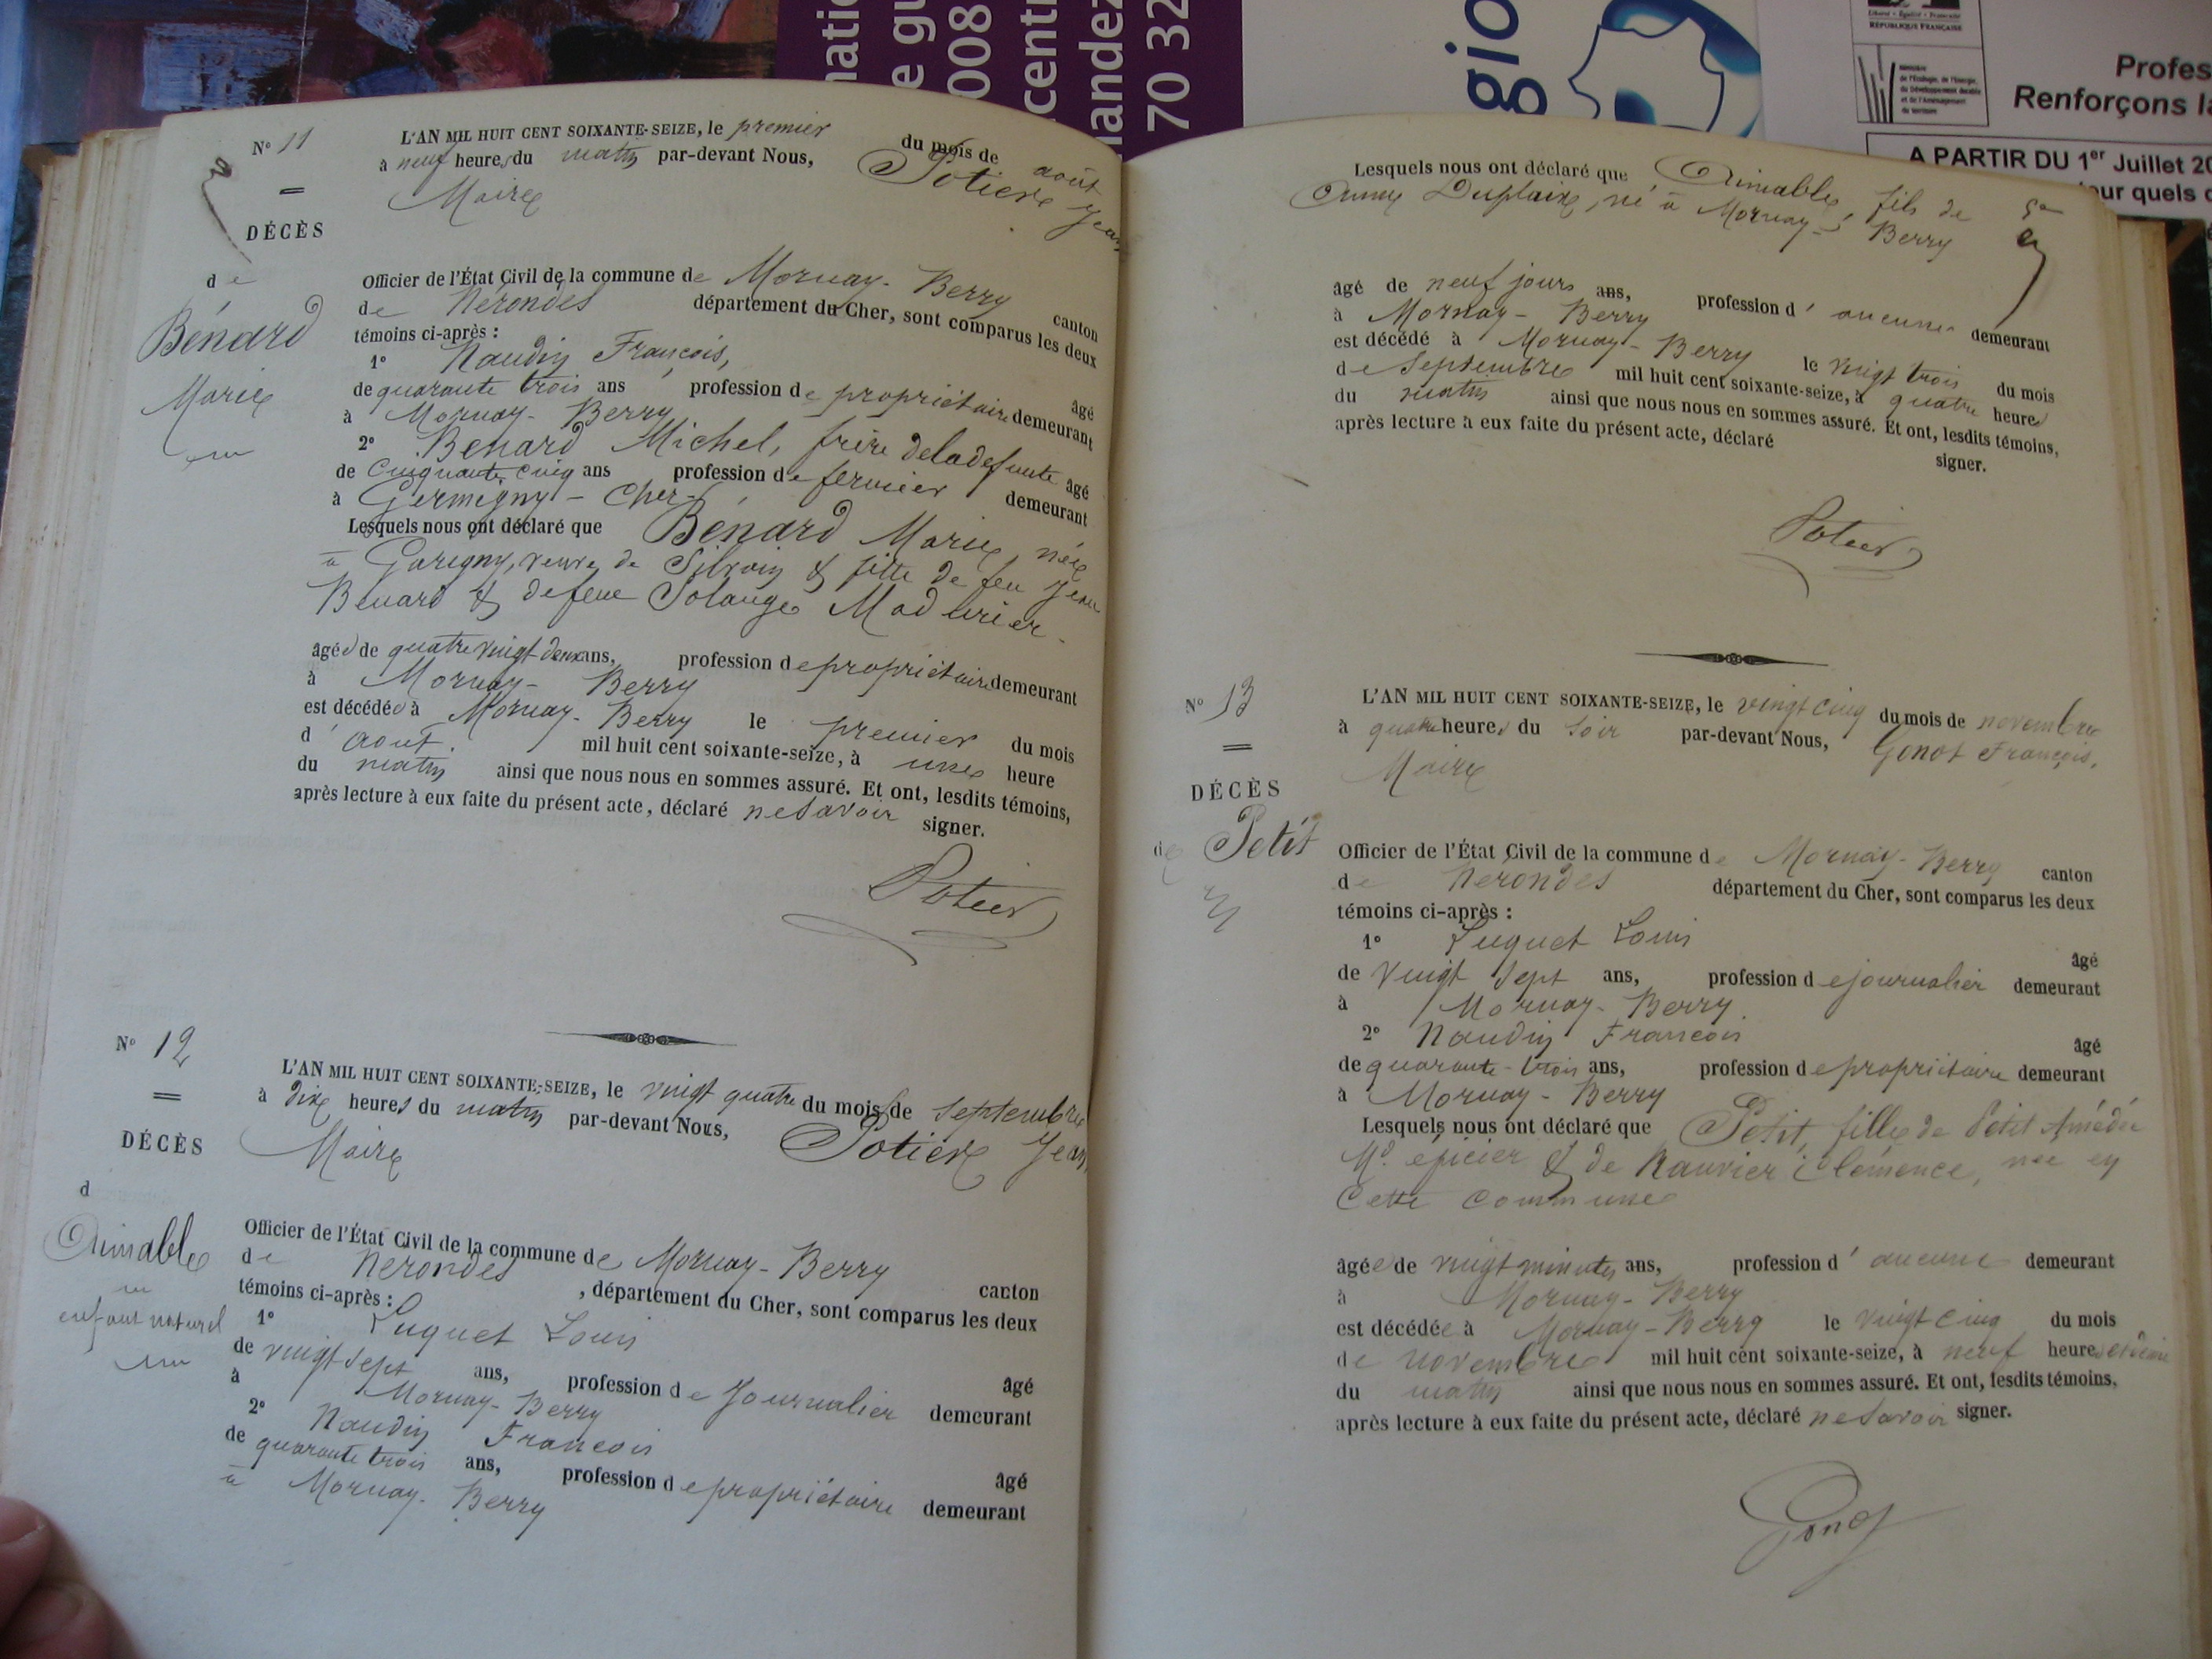 N° 11
L'AN MIL HUIT CENT SOIXANTE-SEIZE, le premier du mois de août
à neuf heures du matin par-devant Nous, Potier Jean
Maire
DÉCÈS
de
Bénard
Marie
Officier de l'État Civil de la commune de Mornay-Berry canton
de Nérondes département du Cher, sont comparus les deux
témoins ci-après :
1° Naudin François, âgé
de quarante trois ans profession de propriétaire demeurant
à Mornay-Berry
2° Benard Michel, frère de la defunte âgé
de Cinquante cinq ans profession de fermier demeurant
à Germigny - Cher
Lesquels nous ont déclaré que Bénard Marie, née
à Garigny, veuve de Silvain & fille de feu Jean
Benard & de feue Solange
âgée de quatre vingt deux ans, profession de propriétaire demeurant
à Mornay-Berry
est décédée à Mornay-Berry le premier du mois
d'août. mil huit cent soixante-seize, à une heure
du matin ainsi que nous nous en sommes assuré. Et ont, lesdits témoins,
après lecture à eux faite du présent acte, déclaré ne savoir signer.
Potier
N° 12
L'AN MIL HUIT CENT SOIXANTE-SEIZE, le vingt quatre du mois de septembre
à dix heures du matin par-devant Nous, Potier Jean
Maire
DÉCÈS
d
Aimable
enfant naturel
Officier de l'État Civil de la commune de Mornay-Berry canton
de Nérondes, département du Cher, sont comparus les deux
témoins ci-après :
1° Luquet Louis âgé
de vingt sept ans, profession de Journalier demeurant
à Mornay-Berry
2° Naudin Francois âgé
de quarante trois ans, profession de propriétaire demeurant
à Mornay-Berry
Lesquels nous ont déclaré que Aimable, fils de
Anne Duplaix, né à Mornay-Berry
âgé de neuf jours ans, profession d'aucune demeurant
à Mornay-Berry
est décédé à Mornay-Berry le vingt trois du mois
de Septembre mil huit cent soixante-seize, à quatre heures
du matin ainsi que nous nous en sommes assuré. Et ont, lesdits témoins,
après lecture à eux faite du présent acte, déclaré signer.
Potier
N° 13
L'AN MIL HUIT CENT SOIXANTE-SEIZE, le vingt cinq du mois de novembre
à quatre heures du soir par-devant Nous, Gonot François,
Maire
DÉCÈS
de Petit
Officier de l'État Civil de la commune de Mornay-Berry canton
de Nérondes département du Cher, sont comparus les deux
témoins ci-après :
1° Luquet Louis âgé
de vingt sept ans, profession de journalier demeurant
à Mornay-Berry
2° Naudin Francois âgé
de quarante-trois ans, profession de propriétaire demeurant
à Mornay-Berry
Lesquels nous ont déclaré que Petit, fille de Petit Amédée
Md. epicier & de Clémence, née en
Cette commune
âgée de vingt minutes ans, profession d'aucune demeurant
à Mornay-Berry
est décédée à Mornay-Berry le vingt cinq du mois
de novembre mil huit cent soixante-seize, à neuf heures et demie
du matin ainsi que nous nous en sommes assuré. Et ont, lesdits témoins,
après lecture à eux faite du présent acte, déclaré ne savoir signer.
Gonot
008
70 32
Liberté • Égalité • Fraternité
RÉPUBLIQUE FRANÇAISE
Profes
Renforçons la
A PARTIR DU 1er Juillet 20
ur quels